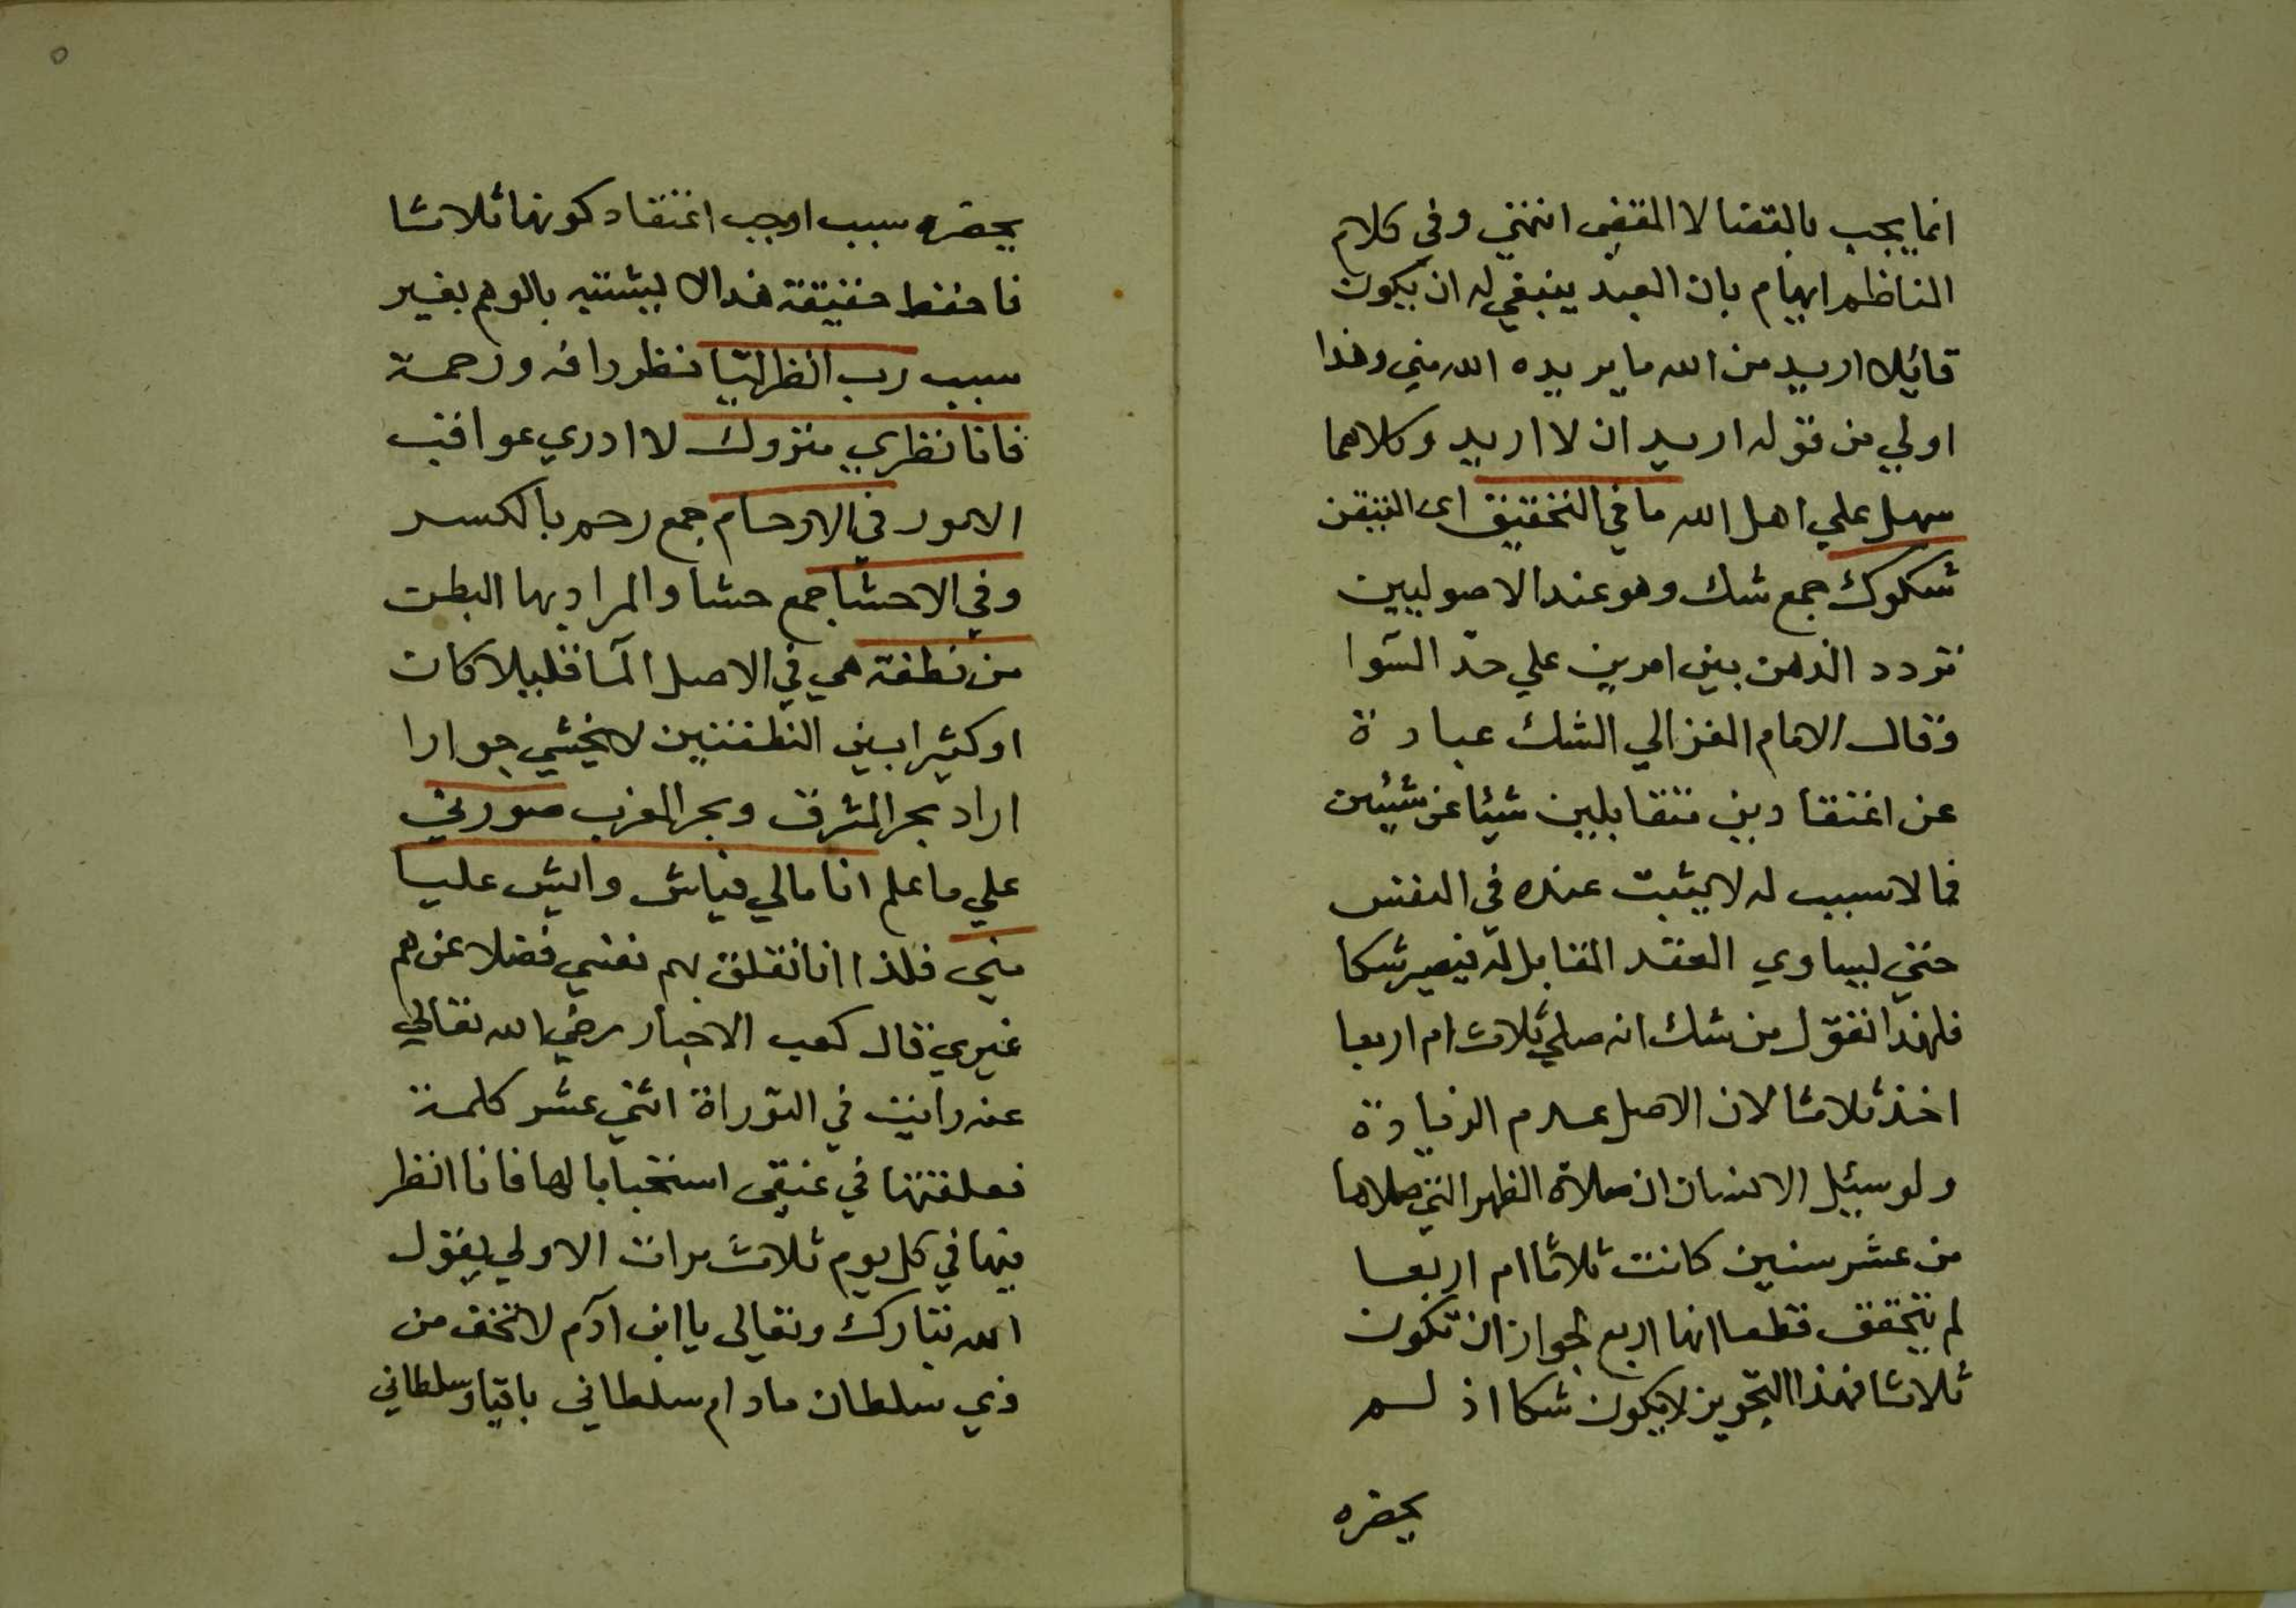 انما يجب بالقضا لا المقضى انتهى وفى كلام
الناظم ايهام بان العبد ينبغي له ان يكون
قائلا اريد من الله ما يريده الله مني وهذا
اولي من قوله اريد ان لا اريد وكلاهما
سهل علي اهل الله ما في التحقيق اى التيقن
شكوك جمع شك وهو عند الاصوليين
تردد الذهن بين امرين علي حدّ السّوا
وقال الامام الغزالي الشك عبارة
عن اعتقادين متقابلين شيئا عن شيئين
فما لا سبب له لا يثبت عنده في النفس
حتي ليساوي العقد المقابل له فيصير شكا
فلهذا نقول من شك انه صلي ثلاث ام اربعا
اخذ ثلاثا لان الاصل عدم الزيادة
ولو سيئل الانسان ان صلاة الظهر التي صلاها
من عشر سنين كانت ثلاثا ام اربعا
لم يتحقق قطعا انها اربع لجواز ان تكون
ثلاثا فهذا التجويز لا يكون شكا اذ لم
يحضره
يحضره سبب اوجب اعتقاد كونها ثلاثا
فاحفظ حقيقة هذا لا يشتبه بالوهم بغير
سبب رب انظر لتيا نظر رافه ورحمة
فانا نظري متروك لا ادري عواقب
الامور في الارحام جمع رحم بالكسر
وفي الاحشا جمع حشا والمراد بها البطن
من نطفة هي في الاصل المآ قليلا كان
او كثيرا بين النطفتين لا يخشي جوارا
اراد بحر المشرق وبحر المغرب صورتي
علي ما علم انا مالي فياش وايش عليا
مني فلذا انا نقلق بهم نفسي فضلا عن هم
غيري قال كعب الاحبار رضي الله تعالي
عنه رايت في التوراة اثني عشر كلمة
فعلقتها في عنقى استحبابا لها فانا انظر
فيها في كل يوم ثلاث مرات الاولي يقول
الله تبارك وتعالى يا ابن آدم لا تخف من
ذي سلطان مادام سلطاني باقيا وسلطاني